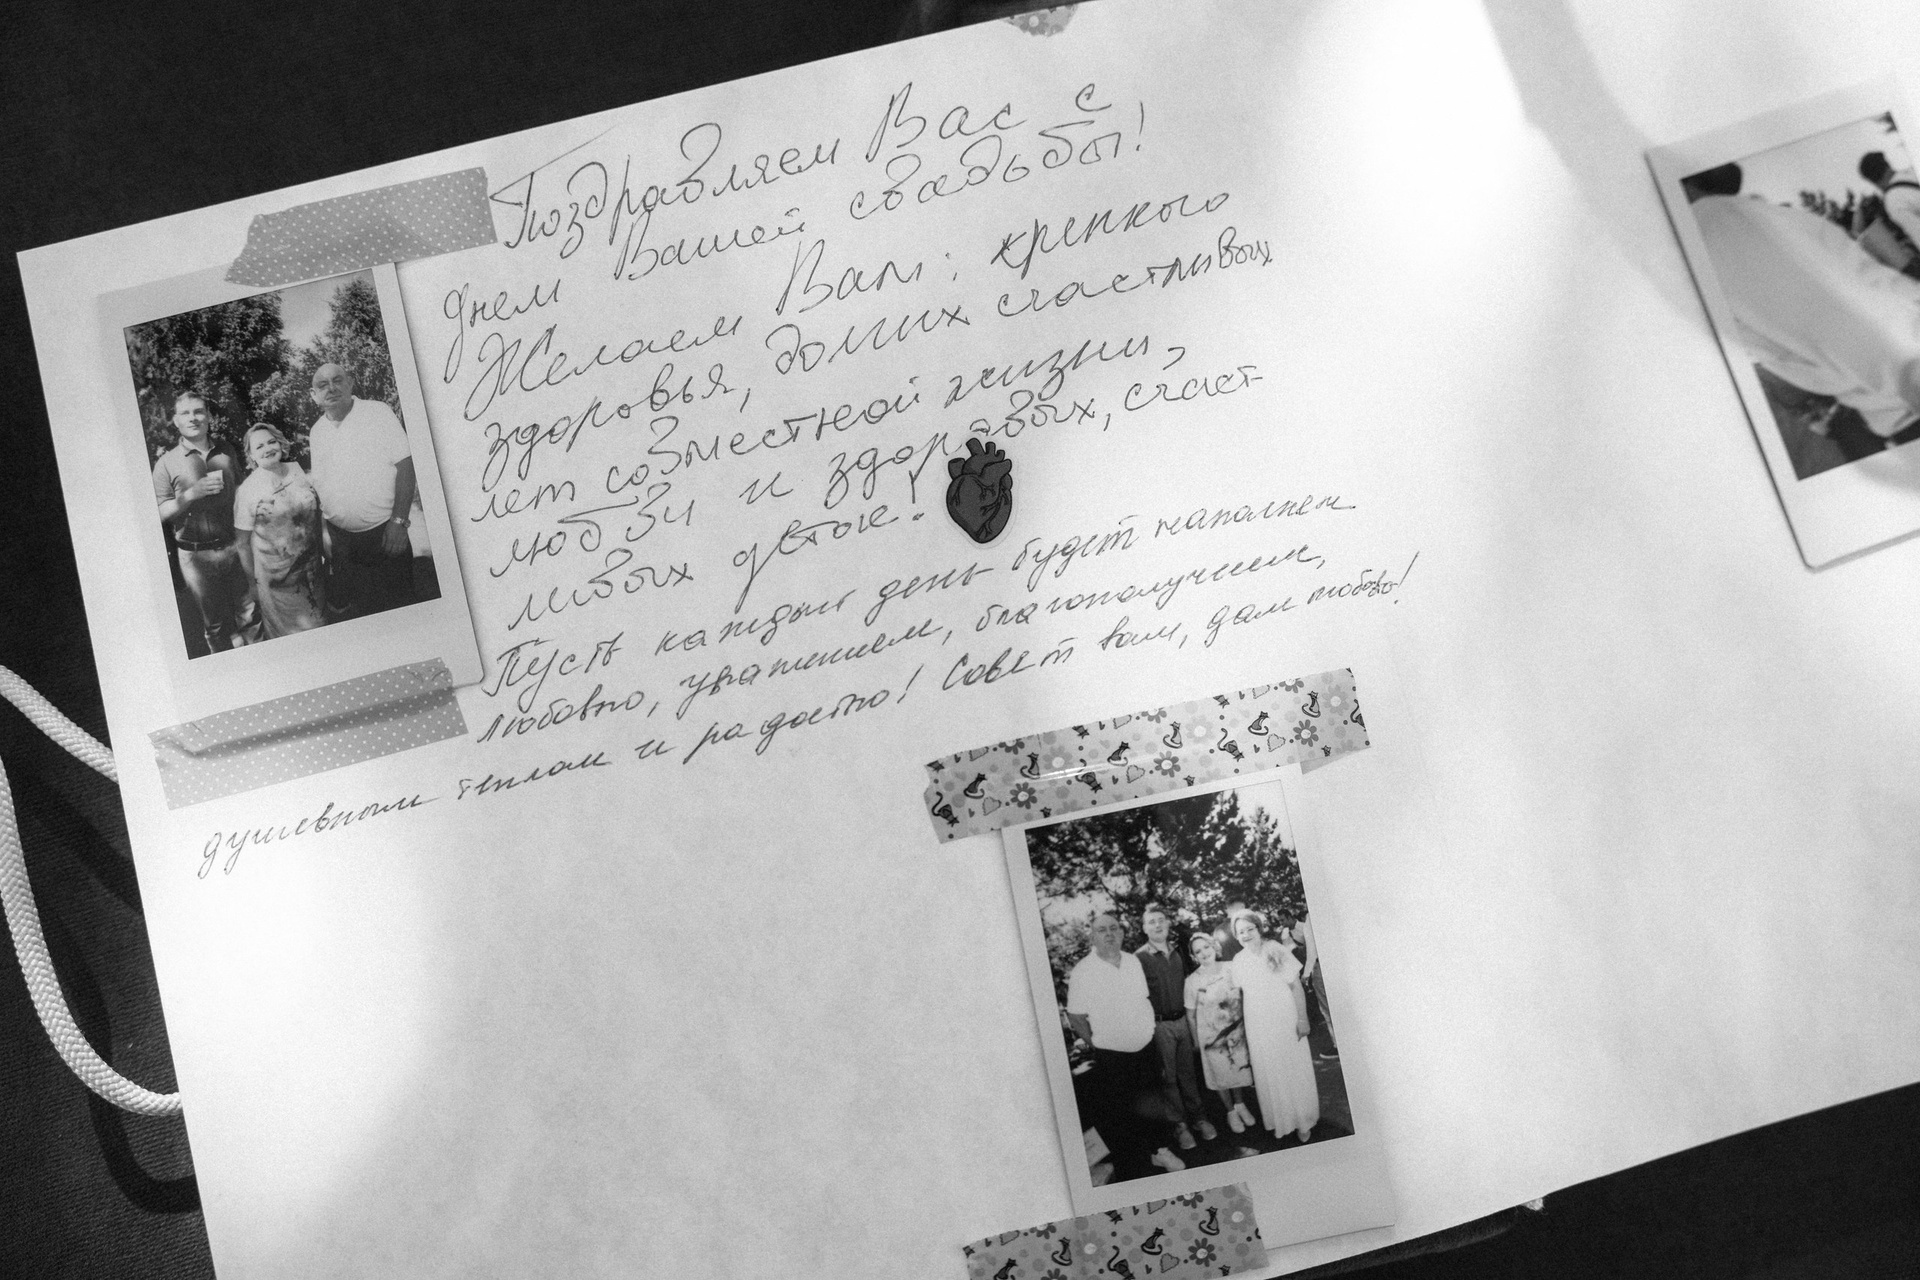 Поздравляем Вас с
днем Вашей свадьбы!
Желаем Вам: крепкого
здоровья, долгих счастливых
лет совместной жизни,
любви и здоровых, счаст-
ливых деток!
Пусть каждый день будет наполнен
любовью, уважением, благополучием,
душевным теплом и радостью! Совет вам, дам любовь!